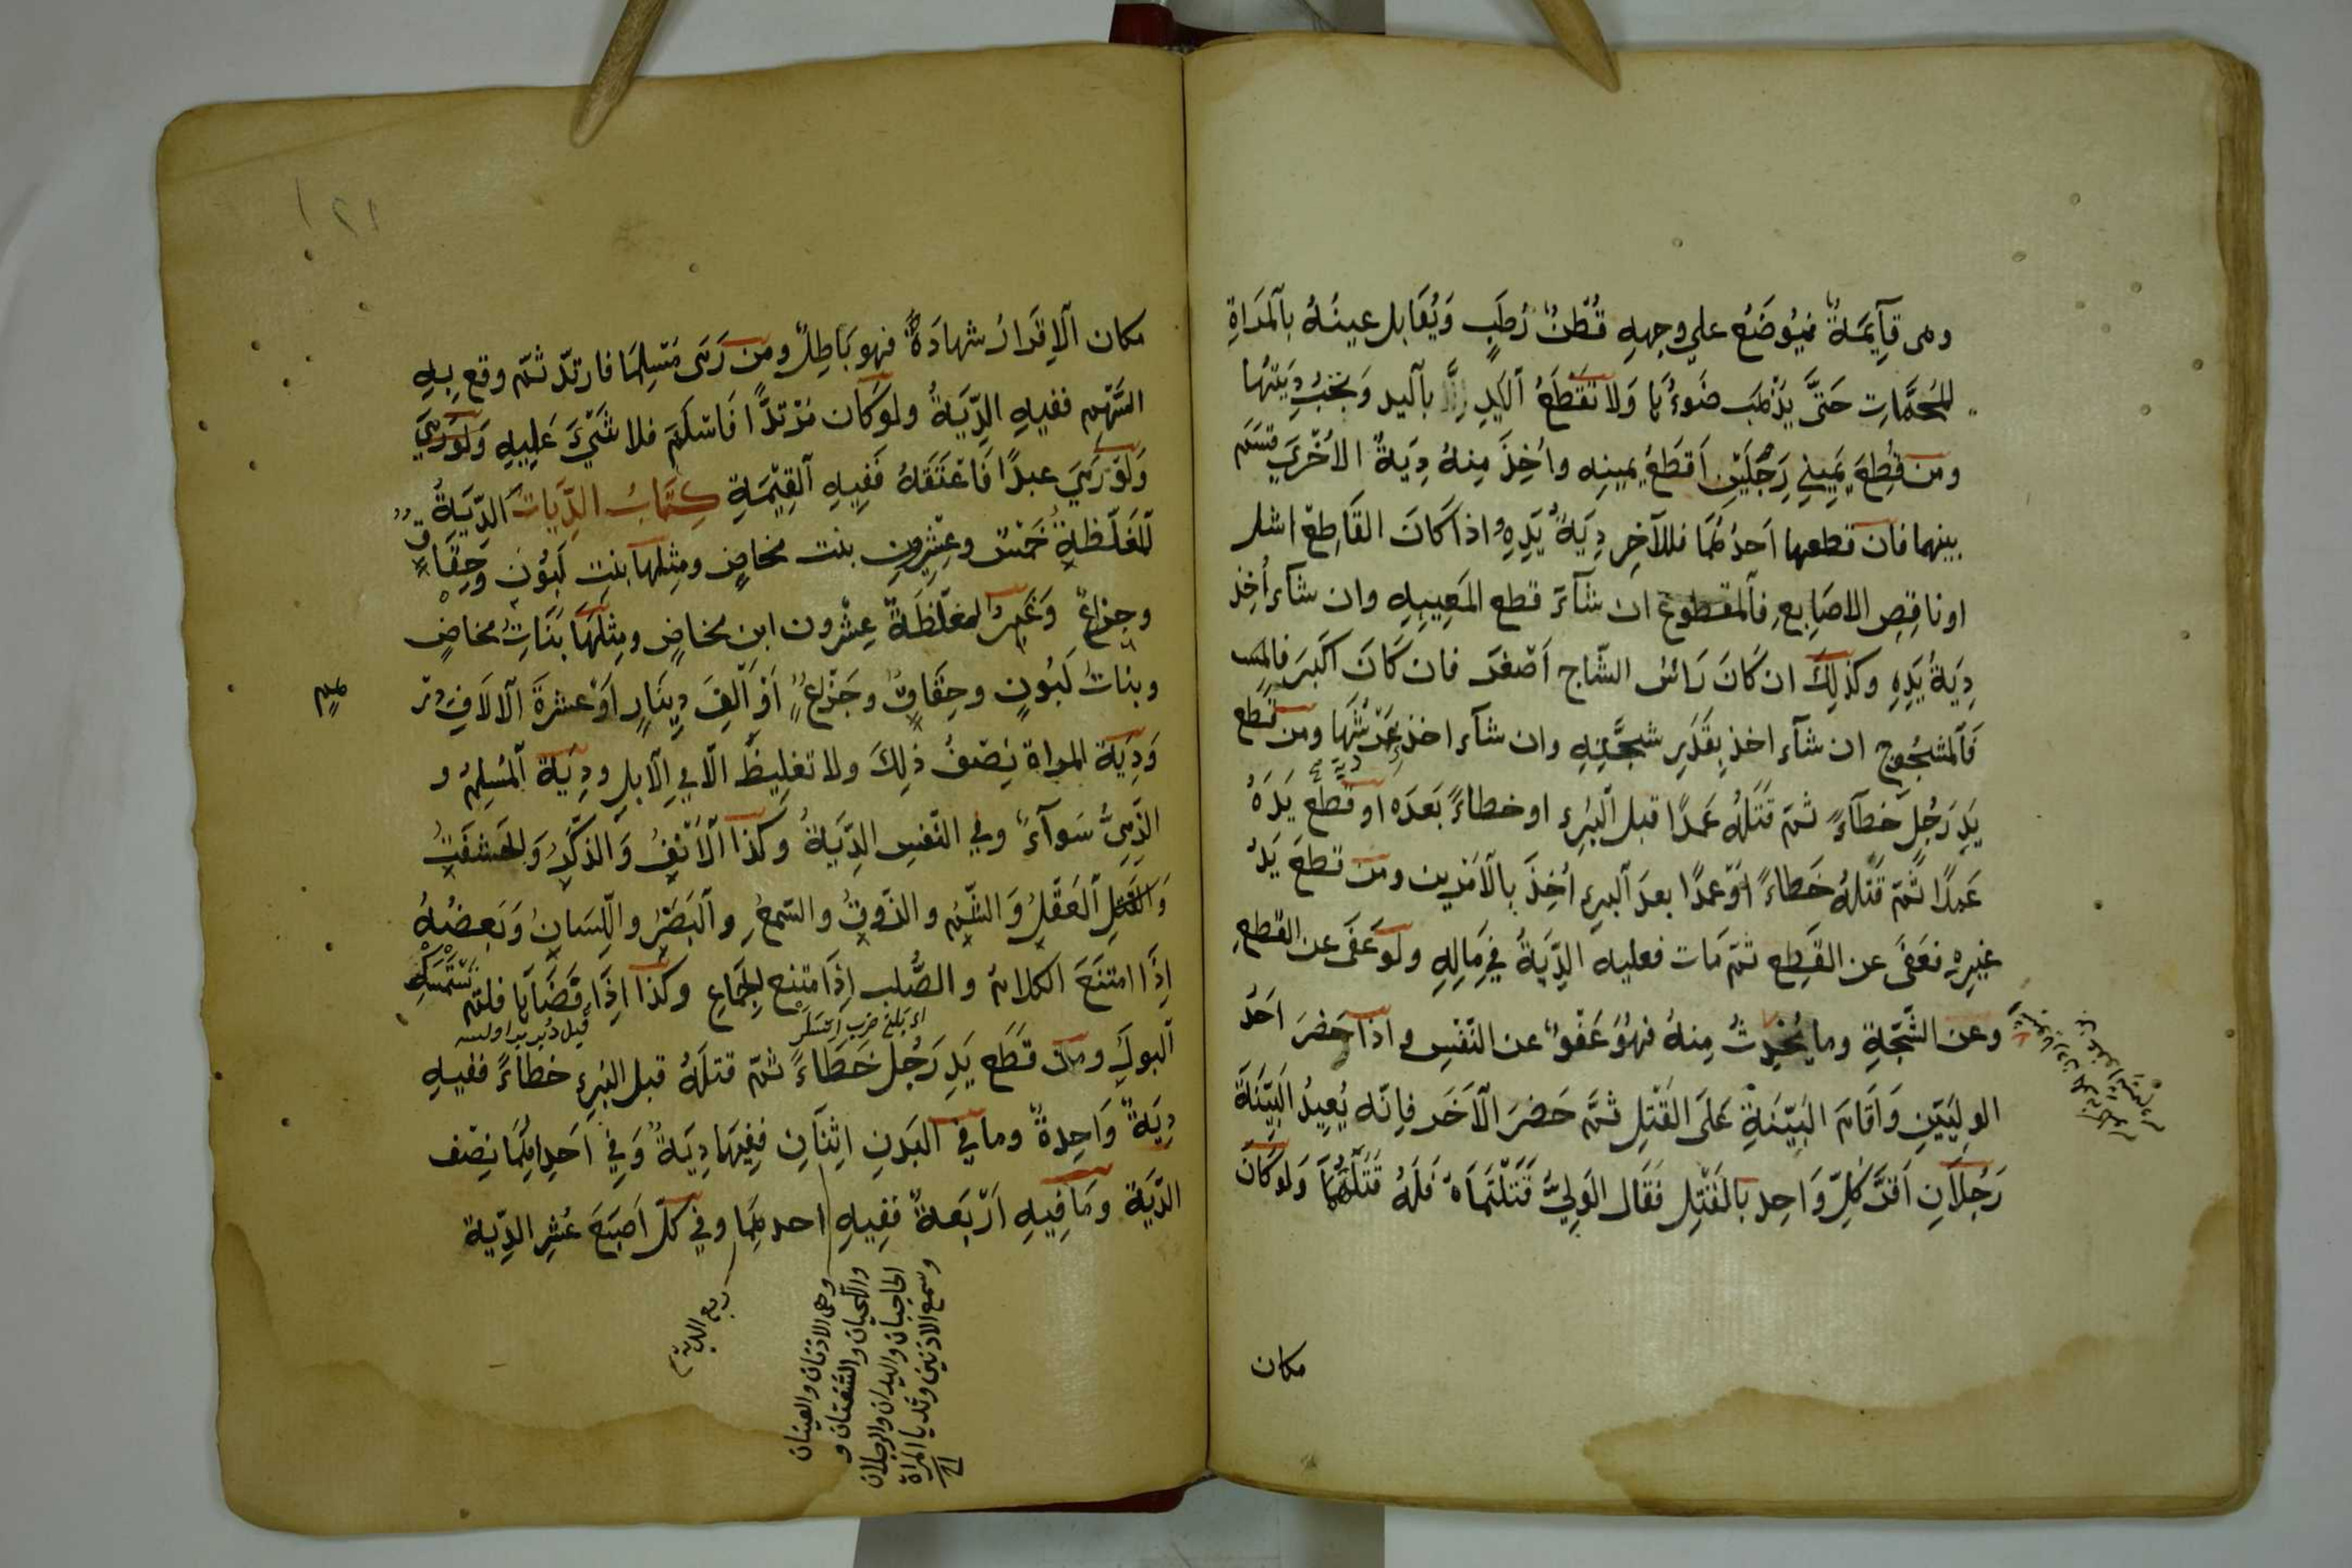 وهى قآيمة فيوضع علي وجهه قطن رطب ويقابل عينه بالمراة
للمحمات حتى يذهب ضوءها ولا تقطع اليد بآليد ويجب ديتها
ومن قطع يميني رجلين اقطع يمينه واخذ منه دية الاخرى قسم
بينهما فان قطعها احدهما فللآخر دية يده واذا كان القاطع اشل
او ناقص الاصابع فالمقطوع ان شآء قطع المعيبه وان شآء أخذ
دية يده وكذلك ان كان رائس الشاج اصغر فان كان اكبر
فالمشجوج ان شآء اخذ بقدر شجته وان شآء اخذ ومن قطع
يد رجل خطآء ثم قتله عمدا قبل البرء او خطاء بعده او قطع يده
عمدا ثم قتله خطاء او عمدا بعد البرء اخذ بالامرين ومن قطع يد
غيره فعفى عن القطع ثم مات فعليه الدية في ماله ولو عفى عن القطع
وعن الشجة وما يحدث منه فهو عفو عن النفس واذا حضر احد
الوليين واقام البينة على القتل ثم حضر الآخر فانه يعيد البينة
رجلان اقر كل واحد بالقتل فقال الولي قتلتماه فله قتلهما ولو كان
مكان
١٢١
مكان الاقرار شهادة فهو باطل ومن رمى مسلما فارتد ثم وقع به
السهم ففيه الدية ولو كان مرتدا فاسلم فلا شيء عليه ولو رمي
ولو رمي عبدا فاعتقه ففيه القيمة كتاب الديات الدية
المغلظة خمس وعشرون بنت مخاض ومثلها بنت لبون وحقاق
وجذاع وغير المغلظة عشرون ابن مخاض ومثلها بنات مخاض
وبنات لبون وحقاق وجذاع او الف دينار او عشرة الالاف در
هم
ودية المراة نصف ذلك ولا تغليظ الا في الابل ودية المسلم و
الذمي سوآء وفي النفس الدية وكذا الانف والذكر والحشفة
والعقل والشم والذوق والسمع والبصر واللسان وبعضه
اذا امتنع الكلام والصلب اذا متنع الجماع وكذا اذا افضاها فلم تستمسك
البول ومن قطع يد رجل خطاء ثم قتله قبل البرء خطاء ففيه
دية واحدة وما في البدن اثنان ففيها دية وفي احدهما نصف
الدية وما فيه اربعة ففيه احدهما وفي كل اصبع عشر الدية
ربع الدية
وهى الاذنان والعينان
واللحيان والشفتان و
الحاجبان واليدان والرجلان
وسمع الاذنين وثديا المراة